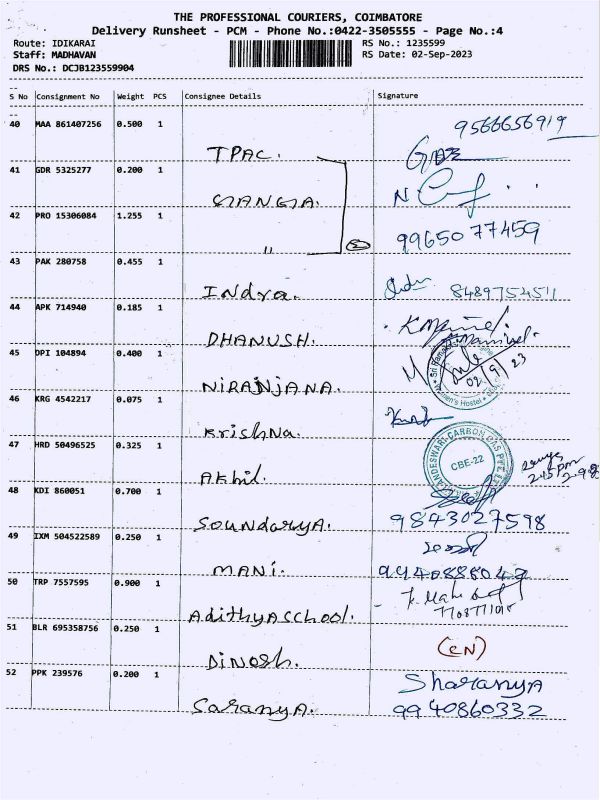 THE PROFESSIONAL COURIERS, COIMBATORE
Delivery Runsheet - PCM - Phone No.:0422-3505555 - Page No.:4
Route: IDIKARAI RS No.: 1235599
Staff: MADHAVAN RS Date: 02-Sep-2023
DRS No.: DCJB123559904
S No Consignment No Weight PCS Consignee Details Signature
40 MAA 861407256 0.500 1 TPAC. 9566656919
41 GDR 5325277 0.200 1 GANGA.
42 PRO 15306084 1.255 1 " 2 9965077459
43 PAK 280758 0.455 1 Indra. 8489754511
44 APK 714940 0.185 1 DHANUSH.
45 DPI 104894 0.400 1 NIRANJANA. 02/9/23
46 KRG 4542217 0.075 1 KrishNa.
47 HRD 50496525 0.325 1 AKhil. CBE-22 2.45pm
48 KDI 860051 0.700 1 SoundaryA. 9843027598
49 IXM 504522589 0.250 1 MANi.
50 TRP 7557595 0.900 1 AdithyA School.
51 BLR 695358756 0.250 1 Dinosh. (CN)
52 PPK 239576 0.200 1 SaranyA. SharanyA
9940860332